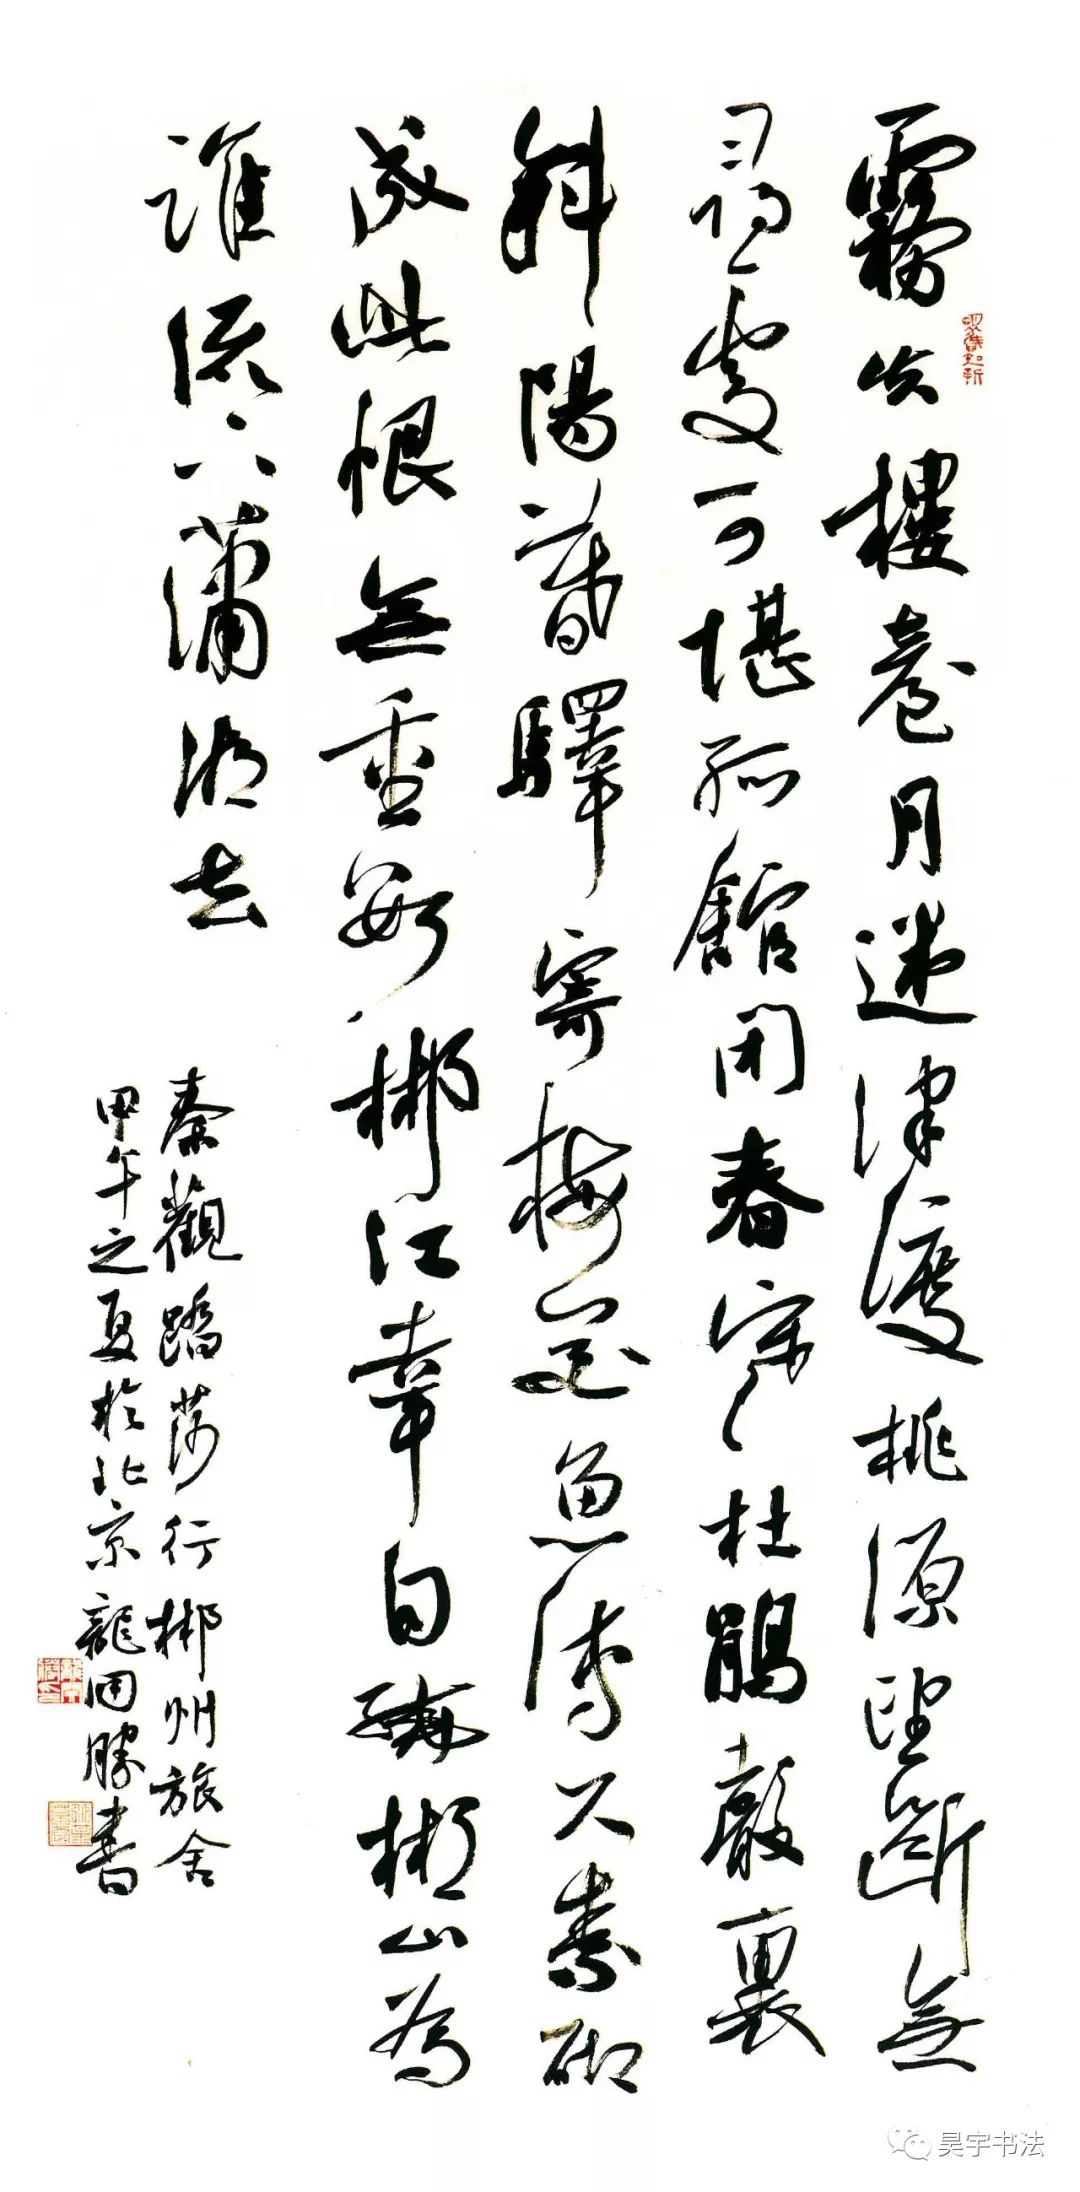 霧失樓臺月迷津渡桃源望斷無
尋處可堪孤館閉春寒杜鵑聲裏
斜陽暮驛寄梅花魚傳尺素砌
成此恨無重數郴江幸自繞郴山為
誰流下瀟湘去
秦觀踏莎行郴州旅舍
甲午之夏於北京龍開勝書
昊宇书法